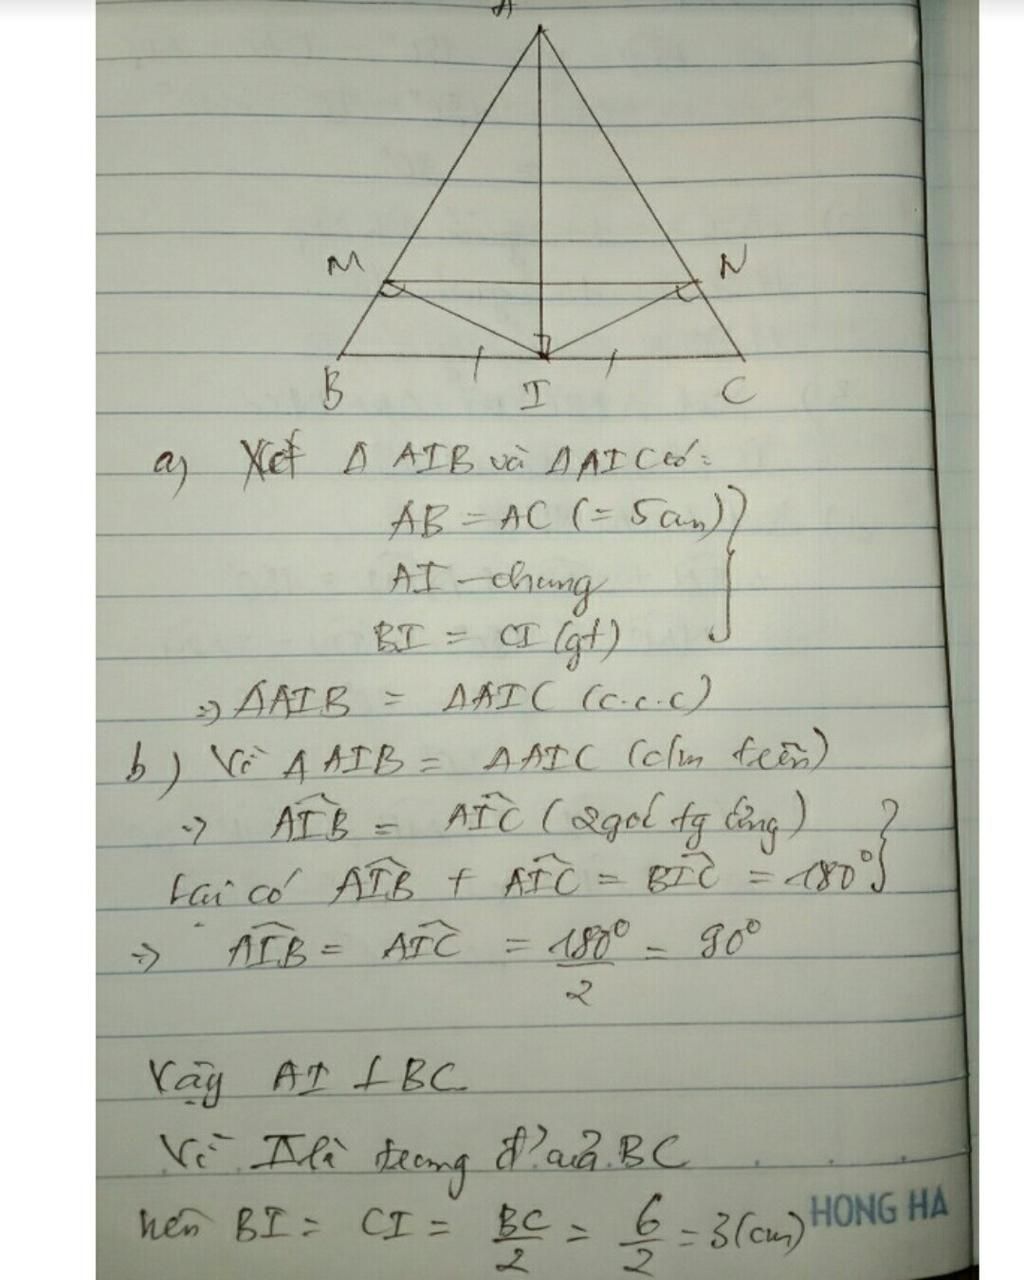 A
M
N
B
I
C
a) Xét Δ AIB và ΔAIC có:
AB = AC (= 5cm)
AI - chung
BI = CI (gt)
=> ΔAIB = ΔAIC (c.c.c)
b) Vì ΔAIB = ΔAIC (c/m trên)
=> AÎB = AÎC (2 góc tg ứng)
Lại có AÎB + AÎC = BÎC = 180°
=> AÎB = AÎC = 180°/2 = 90°
Vậy AI ⊥ BC
Vì I là trung đ' của BC
nên BI = CI = BC/2 = 6/2 = 3(cm)
HONG HA